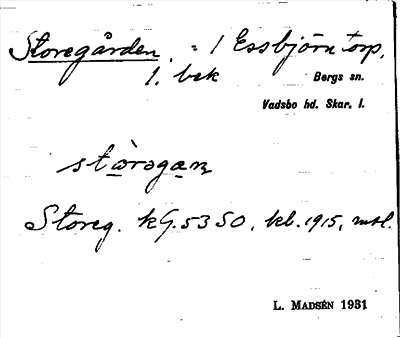 Storegården. = 1 Essbjörntorp.
1. bek
Bergs sn.
Vadsbo hd. Skar. l.
stòrəgan
Storeg. kG. 53 SO, kbl. 1915, mtl.
L. MADSÉN 1931